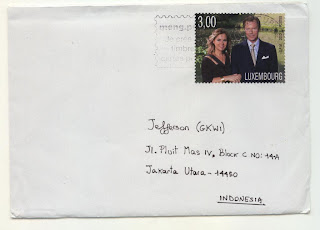 meng.p
3,00
LUXEMBOURG
Jefferson (GKWI)
Jl. Pluit Mas IV, Block C NO: 14A
Jakarta Utara - 14450
INDONESIA